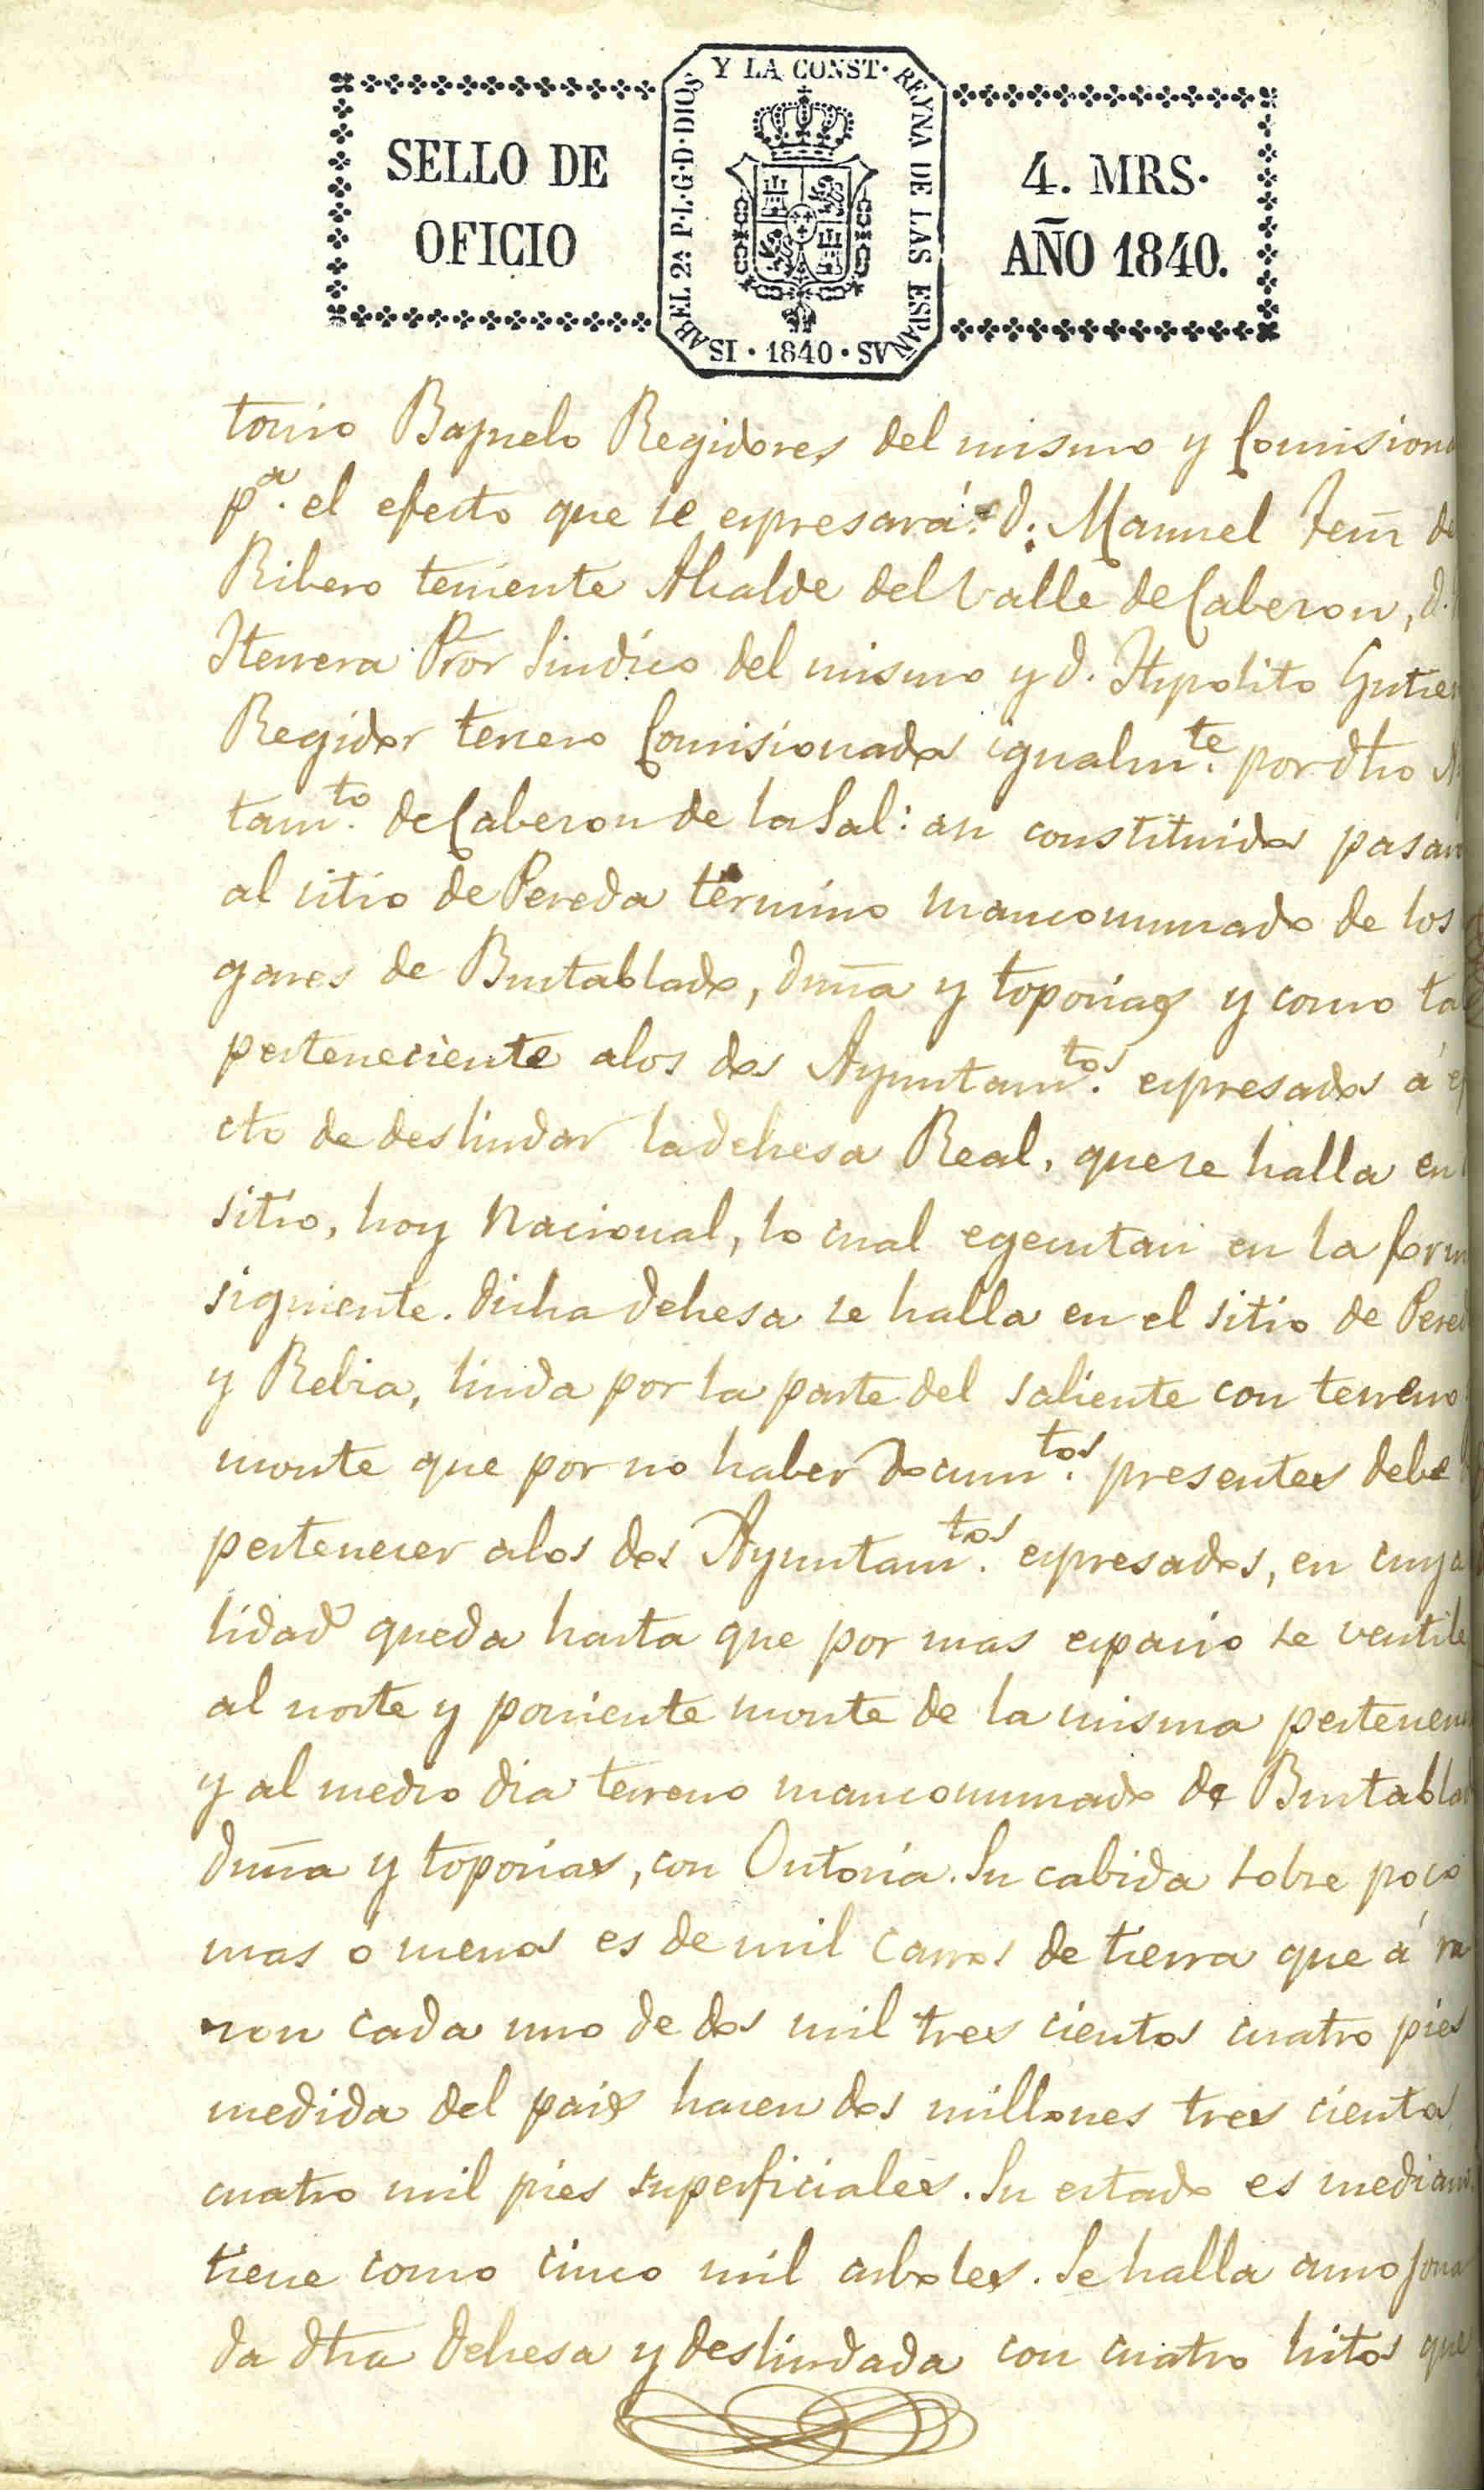 SELLO DE
OFICIO
ISABEL 2ª P.L.G.D.DIOS Y LA CONST. REYNA DE LAS ESPAÑAS
1840
4. MRS.
AÑO 1840.
tonio Bapuelo Regidores del mismo y Comision
pª. el efecto que se espresará: d. Manuel Fern̄ de
Ribero teniente Alcalde del Valle de Cabezon, d.
Herrera Pror Sindico del mismo y d. Hypolito Gutier
Regidor tercero Comisionados igualmte. por dho
tamto. de Cabezon de la Sal: asi constituidos pasaro
al sitio de Pereda término mancomunado de los
gares de Bustablado, Duña y toporias y como ta
perteneciente a los dos Ayuntamtos. espresados á ef
cto de deslindar la dehesa Real, que se halla en
sitio, hoy Nacional, lo cual egecutan en la form
siguiente. Dicha dehesa se halla en el sitio de Pered
y Rebia, linda por la parte del saliente con terreno
monte que por no haber documtos. presentes debe
pertenecer a los dos Ayuntamtos. espresados, en cuya
lidad queda hasta que por mas espacio se ventile
al norte y poniente monte de la misma pertenen
y al medio dia terreno mancomunado de Bustablad
Duña y toporias, con Ontoria. Su cabida sobre poco
mas ó menos es de mil carros de tierra que á ra
zon cada uno de dos mil tres cientos cuatro pies
medida del pais hacen dos millones tres cientos
cuatro mil pies superficiales. Su estado es median
tiene como cinco mil arboles. Se halla amojona
da dha dehesa y deslindada con cuatro hitos que